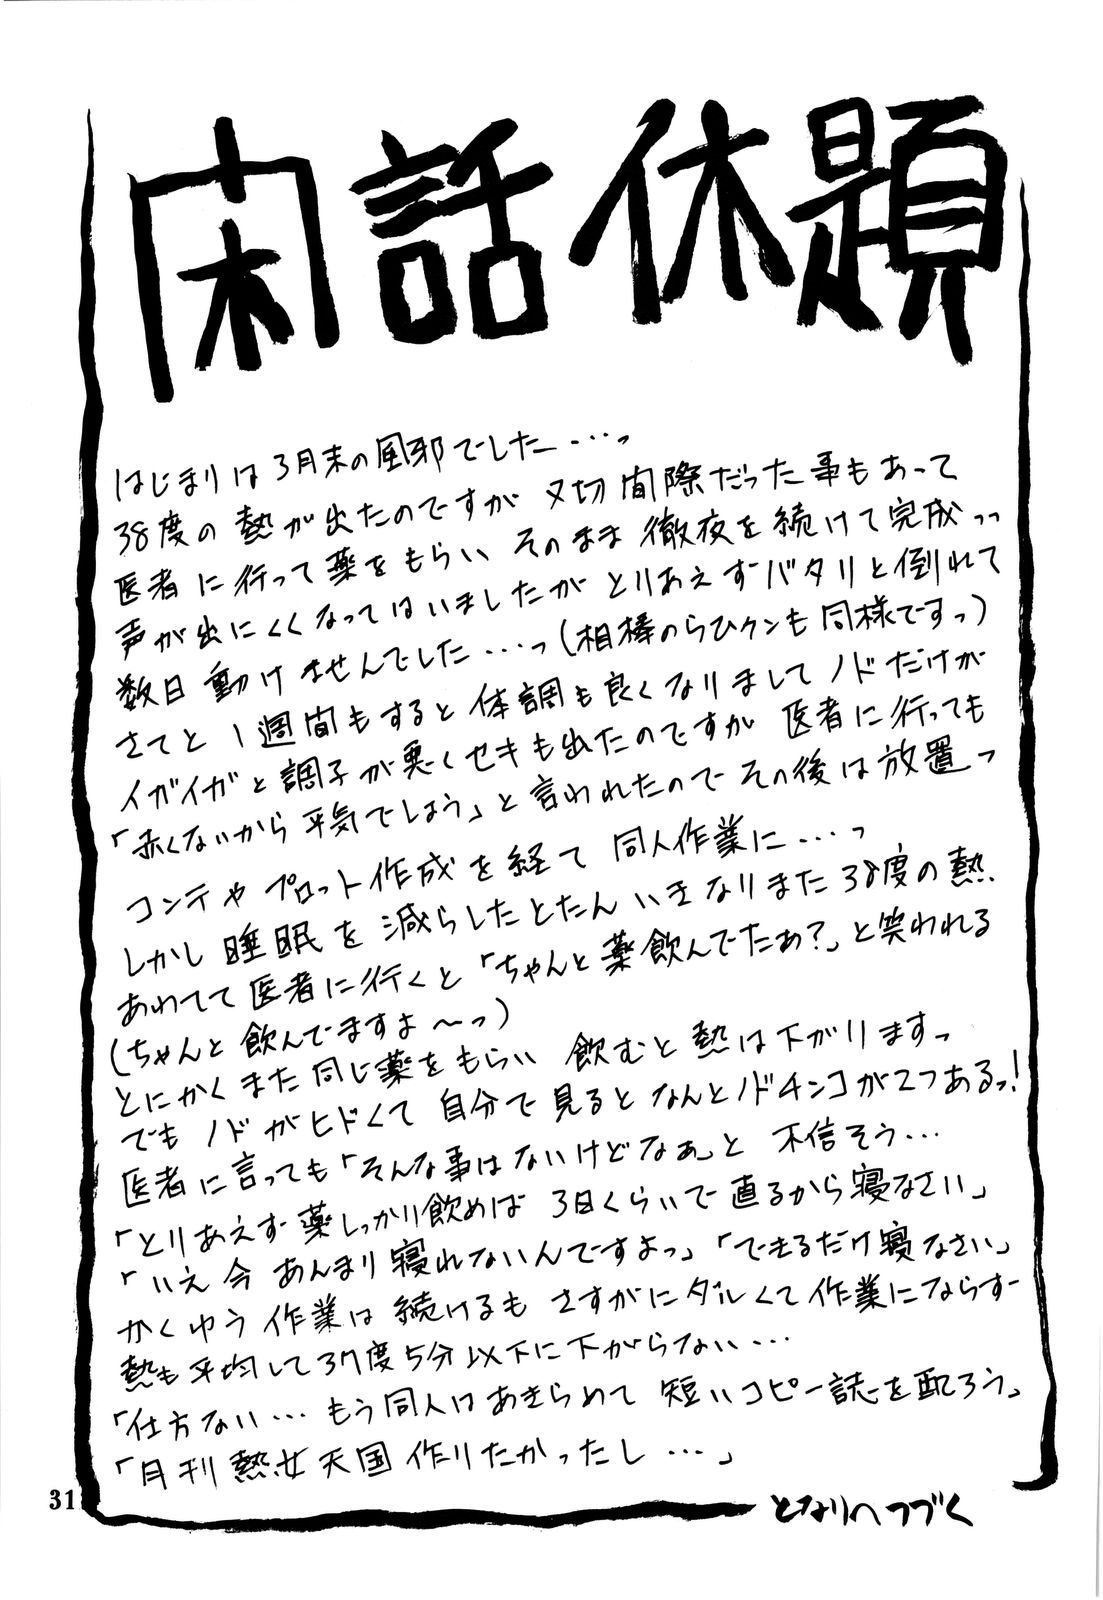 閑話休題
はじまりは3月末の風邪でした…っ
38度の熱が出たのですが〆切間際だった事もあって
医者に行って薬をもらい そのまま徹夜を続けて完成っっ
声が出にくくなってはいましたが とりあえずバタリと倒れて
数日動けませんでした…っ(相棒のらひクンも同様ですっ)
さてと 1週間もすると体調も良くなりまして ノドだけが
イガイガと調子が悪くセキも出たのですが 医者に行っても
「赤くないから平気でしょう」と言われたので その後は放置っ
コンテや プロット作成を経て 同人作業に…っ
しかし睡眠を減らしたとたん いきなりまた38度の熱
あわてて医者に行くと「ちゃんと薬飲んでたぁ?」と笑われる
(ちゃんと飲んでますよ〜っ)
とにかくまた同じ薬をもらい 飲むと熱は下がりますっ
でも ノドがヒドくて 自分で見ると なんとノドチンコが2つあるっ!
医者に言っても「そんな事はないけどなぁ」と 不信そう…
「とりあえず薬しっかり飲めば 3日くらいで直るから寝なさい」
「いえ 今 あんまり寝れないんですよっ」「できるだけ寝なさい」
かくゆう作業は続けるも さすがにダルくて作業にならず
熱も平均して37度5分以下に下がらない…
「仕方ない… もう同人はあきらめて 短いコピー誌を配ろう」
「月刊熱女天国作りたかったし…」
となりへつづく
31